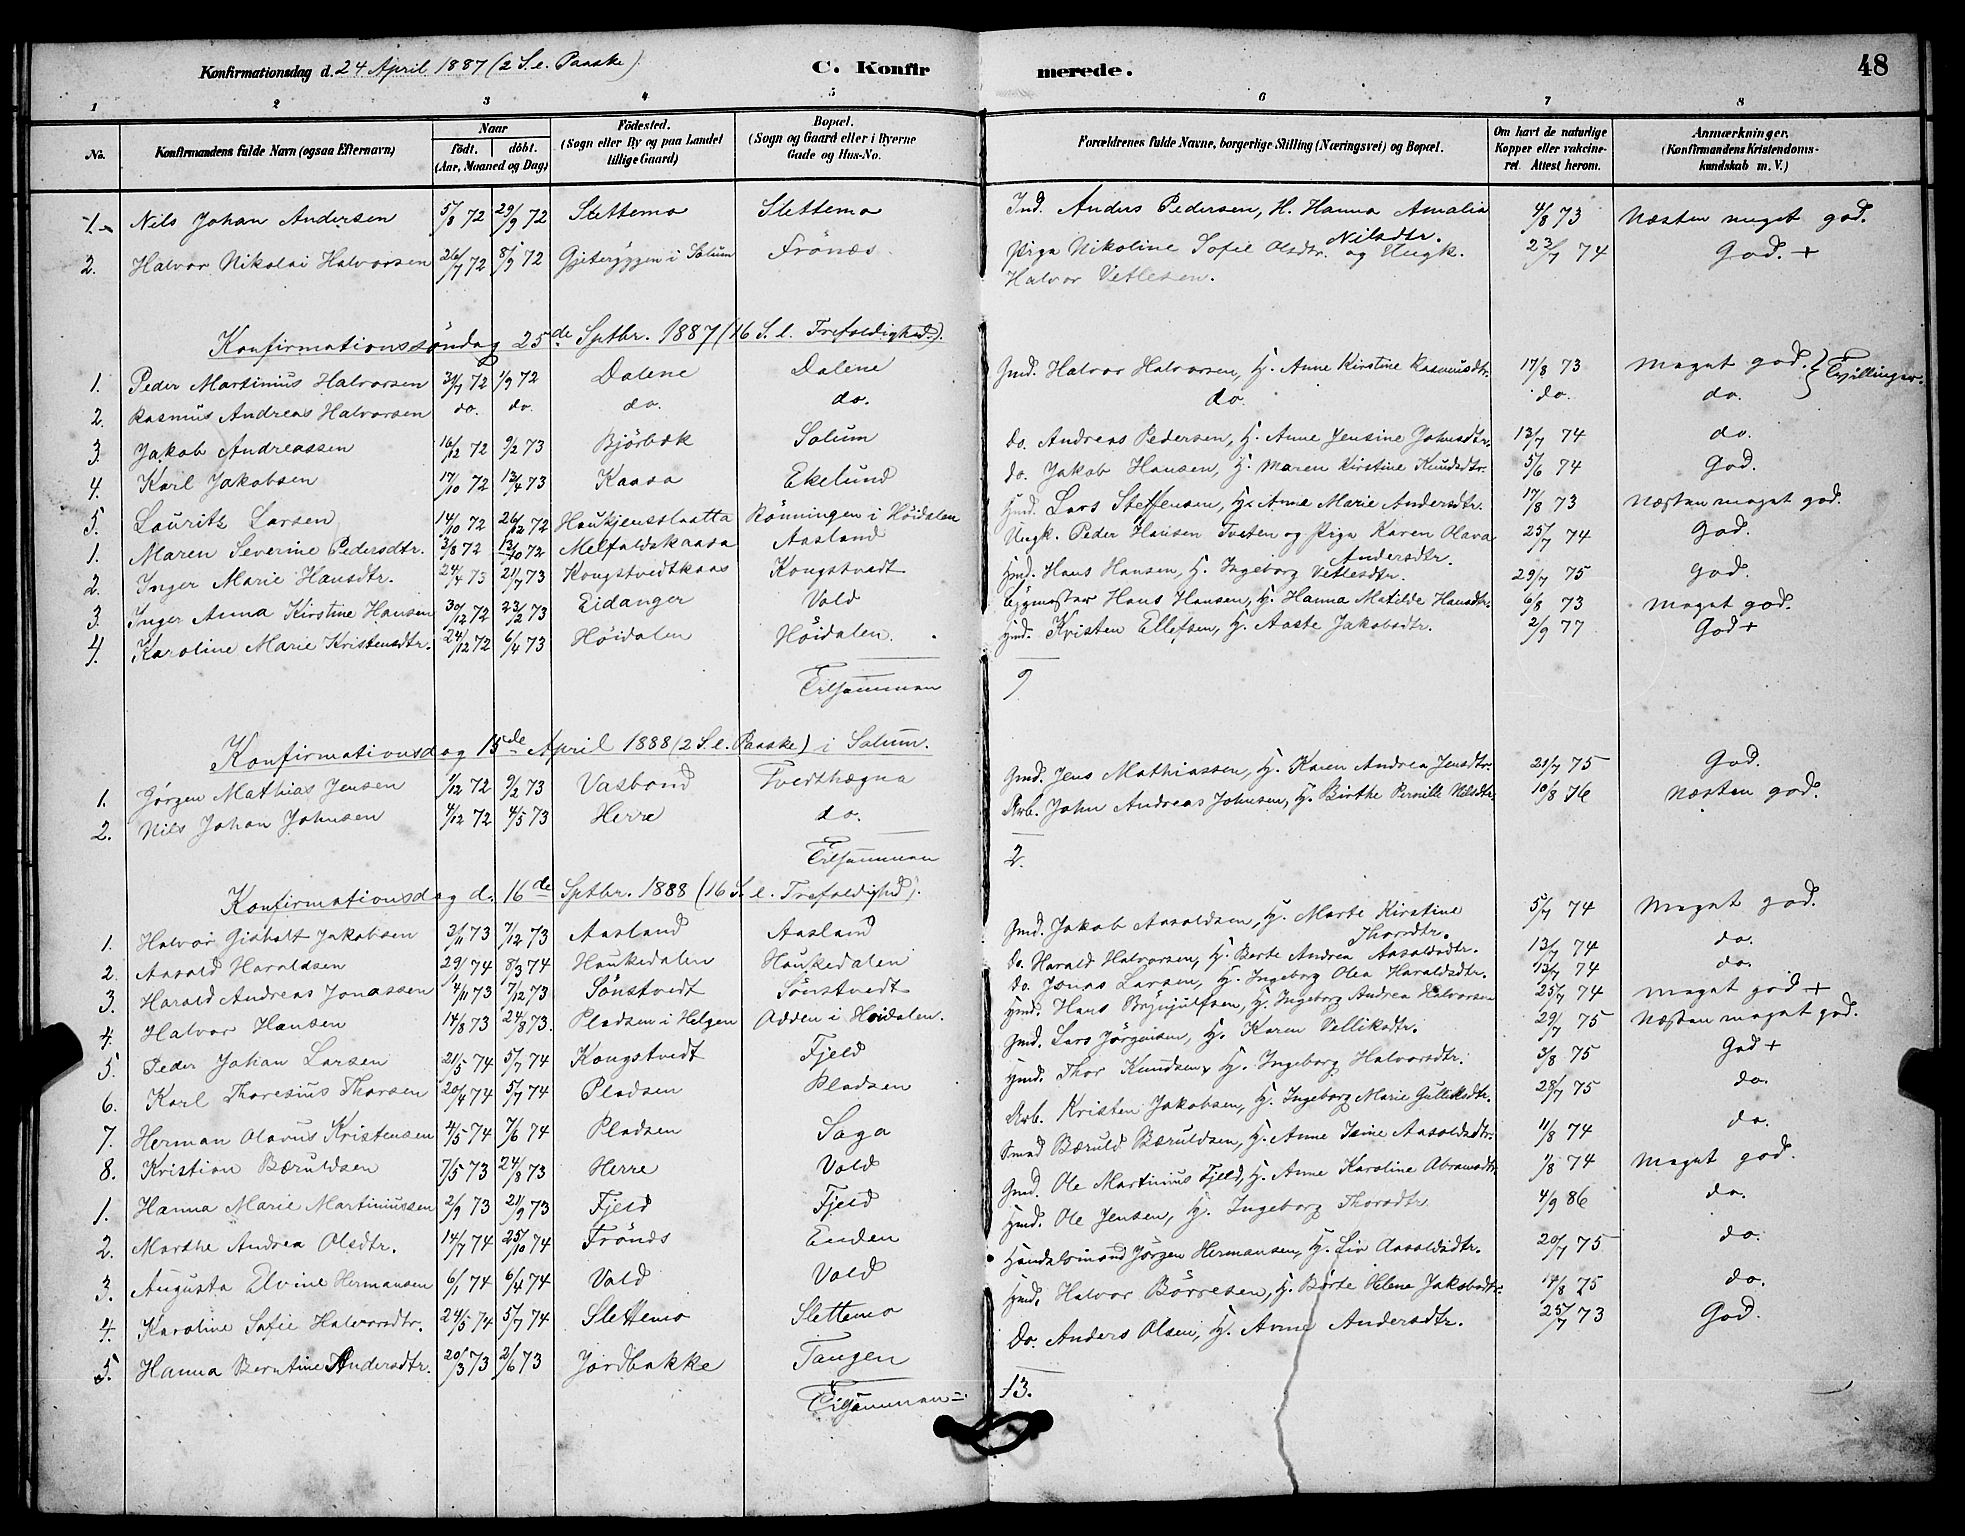 48
Konfirmationsdag d. 24 April 1887 (2 S. e. Paaske) C. Konfirmerede.
1 2 3 4 5 6 7 8
No. Konfirmandens fulde Navn (ogsaa Efternavn) Naar födt. döbt. (Aar, Maaned og Dag) Födested. (Sogn eller By og paa Landet tillige Gaard) Bopæl. (Sogn og Gaard eller i Byerne Gade og Hus-No. Forældrenes fulde Navne, borgerlige Stilling (Næringsvei) og Bopæl. Om havt de naturlige Kopper eller vakcineret. Attest herom. Anmærkninger. (Konfirmandens Kristendomskundskab m. V.)
1. Nils Johan Andersen 5/8 72 29/9 72 Slettemo Slettemo Ind. Anders Pedersen, H. Hanna Amalia Nilsdtr. 4/8 73 Næsten meget god.
2. Halvor Nikolai Halvorsen 26/7 72 8/9 72 Gjeteryggen i Solum Frönæs Pige Nikoline Sofie Olsdtr. og Ungk. Halvor Vetlesen. 23/7 74 God. +
Konfirmationssöndag 25de Sptbr. 1887 (16 S. e. Trefoldighed).
1. Peder Martinius Halvorsen 31/7 72 1/9 72 Dalene Dalene Gmd. Halvor Halvorsen, H. Anne Kirstine Rasmusdtr. 17/8 73 Meget god. } Tvillinger.
2. Rasmus Andreas Halvorsen do. do. do. do. do. do. do.
3. Jakob Andreassen 16/12 72 9/2 73 Björbæk Solum do. Andreas Pedersen, H. Anne Jensine Johnsdtr. 13/7 74 do.
4. Karl Jakobsen 17/10 72 13/4 73 Kaasa Ekelund do. Jakob Hansen, H. Maren Kirstine Knudsdtr. 5/6 74 God.
5. Lauritz Larsen 14/10 72 26/12 72 Haukjensslaatta Rönningen i Höidalen Hmd. Lars Steffensen, H. Anne Marie Andersdtr. 17/8 73 Næsten meget god.
1. Maren Severine Pedersdtr. 3/8 72 13/10 72 Melfaldskaasa Aasland Ungk. Peder Hansen Tveten og Pige Karen Olava Andersdtr. 25/7 74 God.
2. Inger Marie Hansdtr. 24/4 73 21/7 73 Kongstvedtkaas Kongstvedt Hmd. Hans Hansen, H. Ingeborg Vetlesdtr. 29/7 75 God.
3. Inger Anna Kirstine Hansen 30/12 72 23/2 73 Eidanger Vold Bygmester Hans Hansen, H. Hanna Matilde Hansdtr. 6/8 73 Meget god.
4. Karoline Marie Kristensdtr. 24/12 72 6/4 73 Höidalen Höidalen. Hmd. Kristen Ellefsen, H. Aaste Jakobsdtr. 2/9 77 God +
Tilsammen 9
Konfirmationsdag 15de April 1888 (2 S. e. Paaske) i Solum.
1. Jörgen Mathias Jensen 1/12 72 9/2 73 Vasbond Tvedthægna Gmd. Jens Mathiassen, H. Karen Andrea Jensdtr. 21/7 75 God.
2. Nils Johan Johnsen 4/12 72 4/5 73 Herre do. Arb. John Andreas Johnsen, H. Birthe Pernille Nilsdtr. 10/8 76 Næsten god.
Tilsammen 2.
Konfirmationsdag d. 16de Sptbr. 1888 (16 S. e. Trefoldighed).
1. Halvor Gisholt Jakobsen 3/11 73 7/12 73 Aasland Aasland Gmd. Jakob Aasoldsen, H. Marte Kirstine Thorsdtr. 5/7 74 Meget god.
2. Aasold Haraldsen 29/1 74 8/3 74 Haukedalen Haukedalen do. Harald Halvorsen, H. Berte Andrea Aasoldsdtr. 13/7 74 do.
3. Harald Andreas Jonassen 4/11 73 7/12 73 Sönstvedt Sönstvedt do. Jonas Larsen, H. Ingeborg Olea Haraldsdtr. 13/7 74 do.
4. Halvor Hansen 14/8 73 24/8 73. Pladsen i Helgen Odden i Höidalen. Hmd. Hans Brynjulfsen, H. Ingeborg Andrea Halvorsen 25/7 74 Meget god +
5. Peder Johan Larsen 21/5 74 5/7 74 Kongstvedt Fjeld Gmd. Lars Jörgensen, H. Karen Velliksdtr. 29/7 75 Næsten meget god.
6. Karl Thoresius Thorsen 20/4 74 5/7 74 Pladsen Pladsen Hmd. Thor Knudsen, H. Ingeborg Halvorsdtr. 3/8 75 God +
7. Herman Olavus Kristensen 4/5 74 7/6 74 Pladsen Saga Arb. Kristen Jakobsen, H. Ingeborg Marie Gulliksdtr. 28/7 75 do.
8. Kristian Bæruldsen 7/5 73 24/8 73 Herre Vold Smed Bæruld Bæruldsen, H. Anne Isine Aasoldsdtr. 11/8 74 do.
1. Hanna Marie Martiniussen 2/9 73 21/9 73 Fjeld Fjeld Gmd. Ole Martinius Fjeld, H. Anne Karoline Abramsdtr. 1/8 74 Meget god.
2. Marthe Andrea Olsdtr. 14/7 74 25/10 74 Frönæs Enden Hmd. Ole Jensen, H. Ingeborg Thorsdtr. 4/9 86 do.
3. Augusta Elvine Hermansen 6/1 74 6/4 74 Vold Vold Handelsmand Jörgen Hermansen, H. Liv Aasoldsdtr. 20/7 75 do.
4. Karoline Sofie Halvorsdtr. 24/5 74 5/7 74 Slettemo Slettemo Hmd. Halvor Börresen, H. Berte Helene Jakobsdtr. 14/8 75 do.
5. Hanna Berntine Andersdtr. 20/3 73 2/6 73 Jordbakke Tangen Do. Anders Olsen, H. Anne Andersdtr. 25/7 73 God.
Tilsammen = 13.